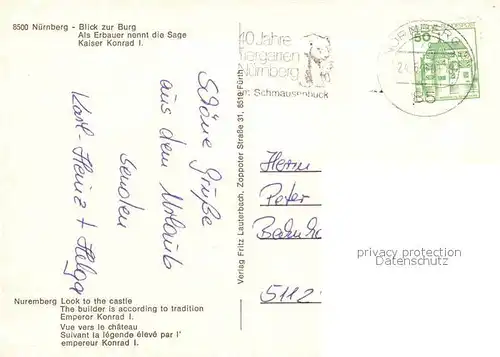 8500 Nürnberg - Blick zur Burg
Als Erbauer nennt die Sage
Kaiser Konrad I.
40 Jahre
Tiergarten
Nürnberg
Schmausenbuck
NÜRNBERG
50
50
Schöne Grüße
aus dem Urlaub
senden
Karl-Heinz + Helga
Verlag Fritz Lauterbach, Zoppoter Straße 31, 8510 Fürth
Herrn
Peter
5112
privacy protection
Datenschutz
Nuremberg Look to the castle
The builder is according to tradition
Emperor Konrad I.
Vue vers le château
Suivant la légende élevé par l'
empereur Konrad I.